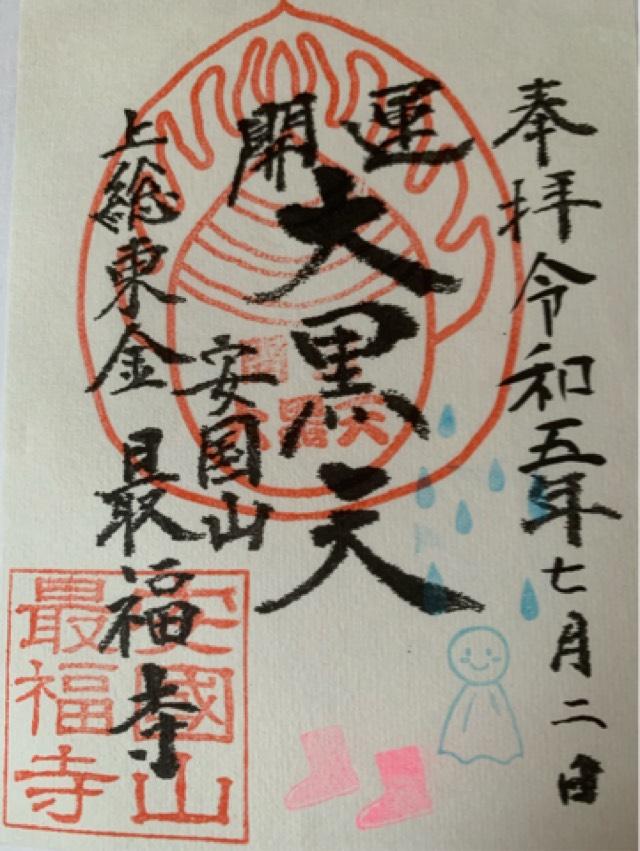 奉拝令和五年七月二日
開運
大黒天
安国山
上総東金最福寺
開運
大黒天
安國山
最福寺